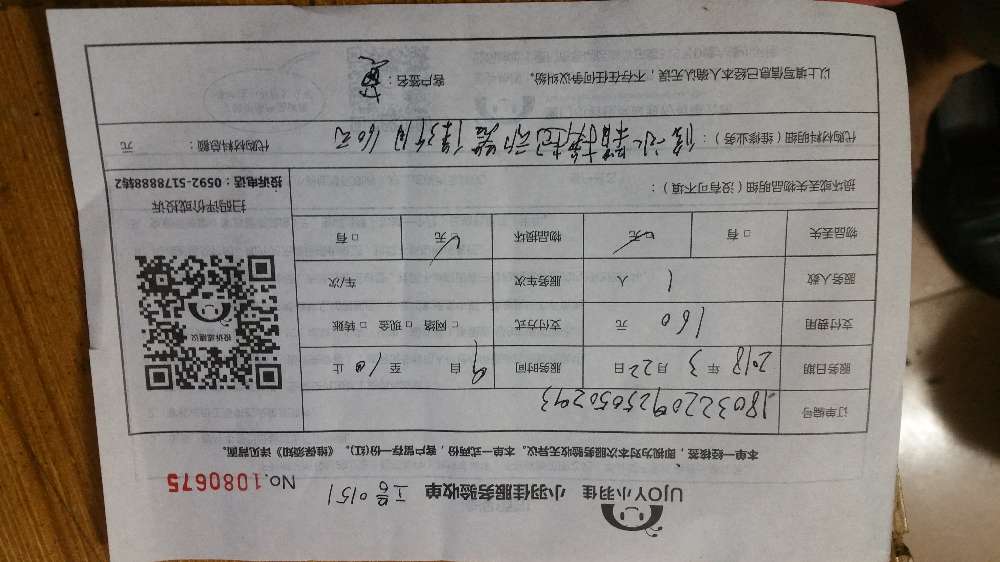 UJOY小羽佳 小羽佳服务验收单 工号0151 No.1080675
本单一经核签，即视为对本次服务验收无异议。本单一式两份，客户留存一份(红)。《维保须知》详见背面。
订单编号 180322092505029 3
服务日期 2018 年 3 月 22 日 服务时间 自 9 至 10 止
支付费用 160 元 支付方式 □ 网络 □ 现金 □ 转账
服务人数 1 人 服务车次 车/次
物品丢失 □ 有 □ 无 物品损坏 □ 无 □ 有
损坏或丢失物品明细（没有可不填）：
投诉建议
扫码评价或投诉
投诉电话：0592-5178888转2
代购材料明细（维修业务）： 160元 代购材料总额： 元
以上填写信息已经本人确认无误，不存在任何争议纠纷。 客户签名：